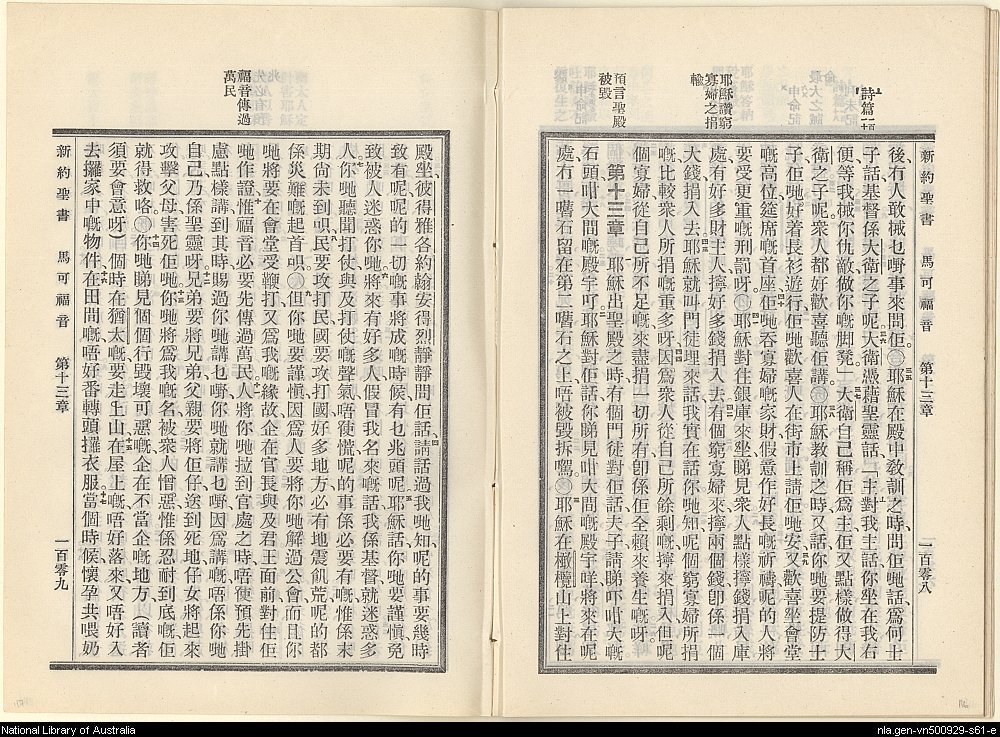 新約聖書 馬可福音 第十三章 一百零八
詩篇一百一十
耶穌讚窮寡婦之捐輸
預言聖殿被毀
後冇人敢掝乜嘢事來問佢耶穌在殿中教訓之時問佢哋話爲何士
子話基督係大衛之子呢大衛憑藉聖靈話「主對我主話你坐在我右
便等我掝你仇敵做你嘅脚凳」大衛自己稱佢爲主佢又點樣做得大
衛之子呢衆人都好歡喜聽佢講耶穌教訓之時又話你哋要提防士
子佢哋好着長衫遊行佢哋歡喜人在街市上請佢哋安又歡喜坐會堂
嘅高位筵席嘅首座佢哋吞寡婦嘅家財假意作好長嘅祈禱呢的人將
要受更重嘅刑罰呀耶穌對住銀庫來坐睇見衆人點樣擰錢捐入庫
處有好多財主人擰好多錢捐入去有個窮寡婦來擰兩個錢卽係一個
大錢捐入去耶穌就叫門徒埋來話我實在話你哋知呢個窮寡婦所捐
嘅比較衆人所捐嘅重多呀因爲衆人從自己所餘剩嘅擰來捐入但呢
個寡婦從自己所不足嘅來盡捐一切所有卽係佢全賴來養生嘅
第十三章 耶穌出聖殿之時有個門徒對佢話夫子請睇吓咁大嘅
石頭咁大間嘅殿宇吖耶穌對佢話你睇見咁大間嘅殿宇咩將來在呢
處冇一嚿石留在第二嚿石之上唔被毀拆嘅耶穌在橄欖山上對住
福音傳過萬民
殿坐彼得雅各約翰安得烈靜靜問佢話請話過我哋知呢的事要幾時
致有呢呢的一切嘅事將成嘅時候有乜兆頭呢耶穌話你哋要謹愼免
致被人迷惑你哋將來有好多人假冒我名來嘅話我係基督就迷惑多
人你哋聽聞打仗與及打仗嘅聲氣唔使慌呢的事係必要有嘅惟係末
期尙未到唄民要攻打民國要攻打國好多地方必有地震飢荒呢的都
係災難嘅起首唄但你哋要謹愼因爲人要將你哋解過公會而且你
哋將要在會堂受鞭打又爲我嘅緣故企在官長與及君王面前對住佢
哋作證惟福音必要先傳過萬民人將你哋拉到官處之時唔使預先掛
慮點樣講到其時賜過你哋講乜嘢你哋就講乜嘢因爲講嘅唔係你哋
自己乃係聖靈呀兄弟要將兄弟父親要將佢仔送到死地仔女將起來
攻擊父母害死佢哋你哋將爲我嘅名被衆人憎惡惟係忍耐到底嘅佢
就得救咯你哋睇見個個行毀壞可惡嘅企在不當企嘅地方(讀者
須要會意呀)個時在猶太嘅要走上山在屋上嘅唔好落來又唔好入
去攞家中嘅物件在田間嘅唔好番轉頭攞衣服當個時候懷孕共喂奶
新約聖書 馬可福音 第十三章 一百零九
National Library of Australia
nla.gen-vn500929-s61-e